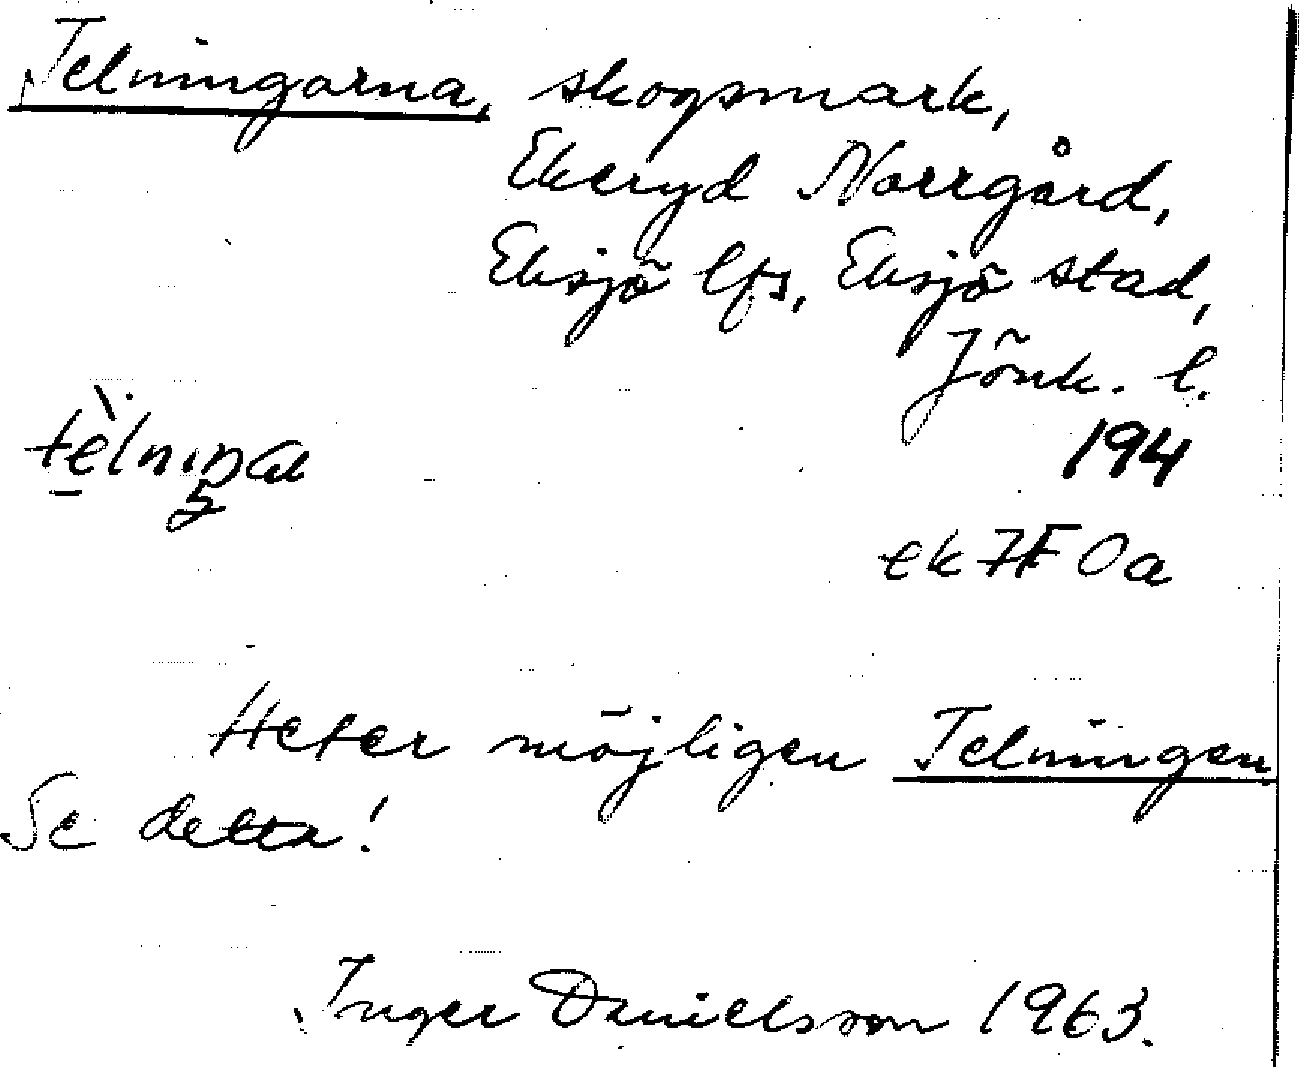 Telningarna, skogsmark,
Ekeryd Norrgård,
Eksjö lfs, Eksjö stad,
Jönk. l.
194
ek 7F 0a
Heter möjligen Telningen
Se detta!
Inger Danielsson 1963.